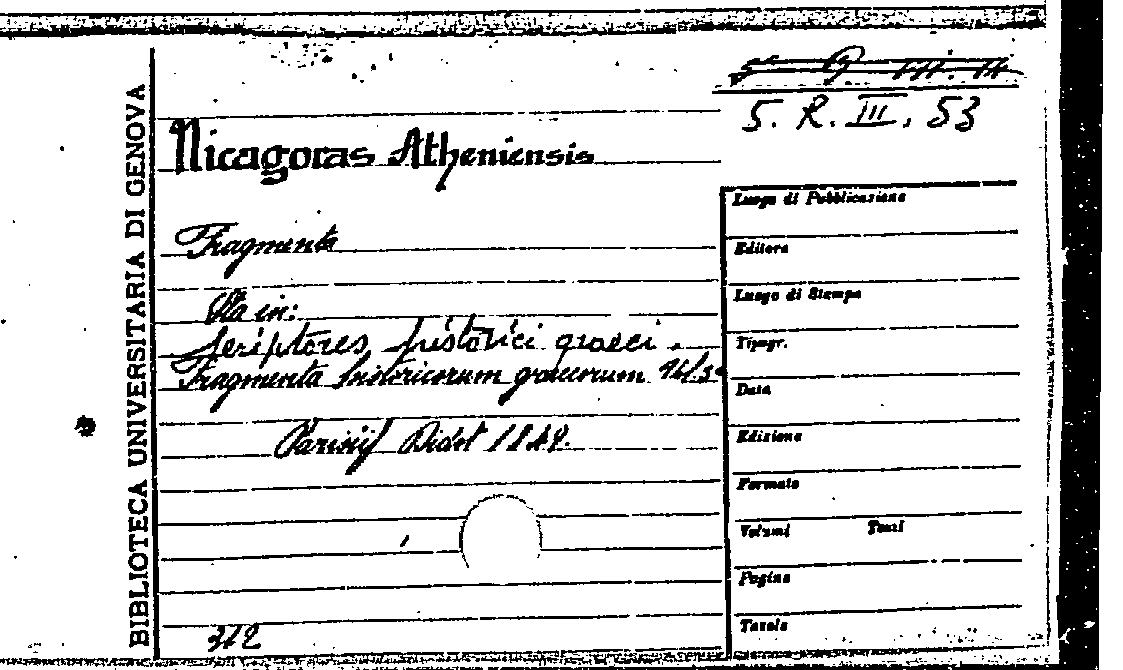 BIBLIOTECA UNIVERSITARIA DI GENOVA
5. R. III. 53
Nicagoras Atheniensis
Fragmenta
Sta in:
Scriptores historici graeci.
Fragmenta historicorum graecorum
Parisiis Didot 1849.
312
Luogo di Pubblicazione
Editore
Luogo di Stampa
Tipogr.
Data
Edizione
Formato
Volumi Tomi
Pagine
Tavole